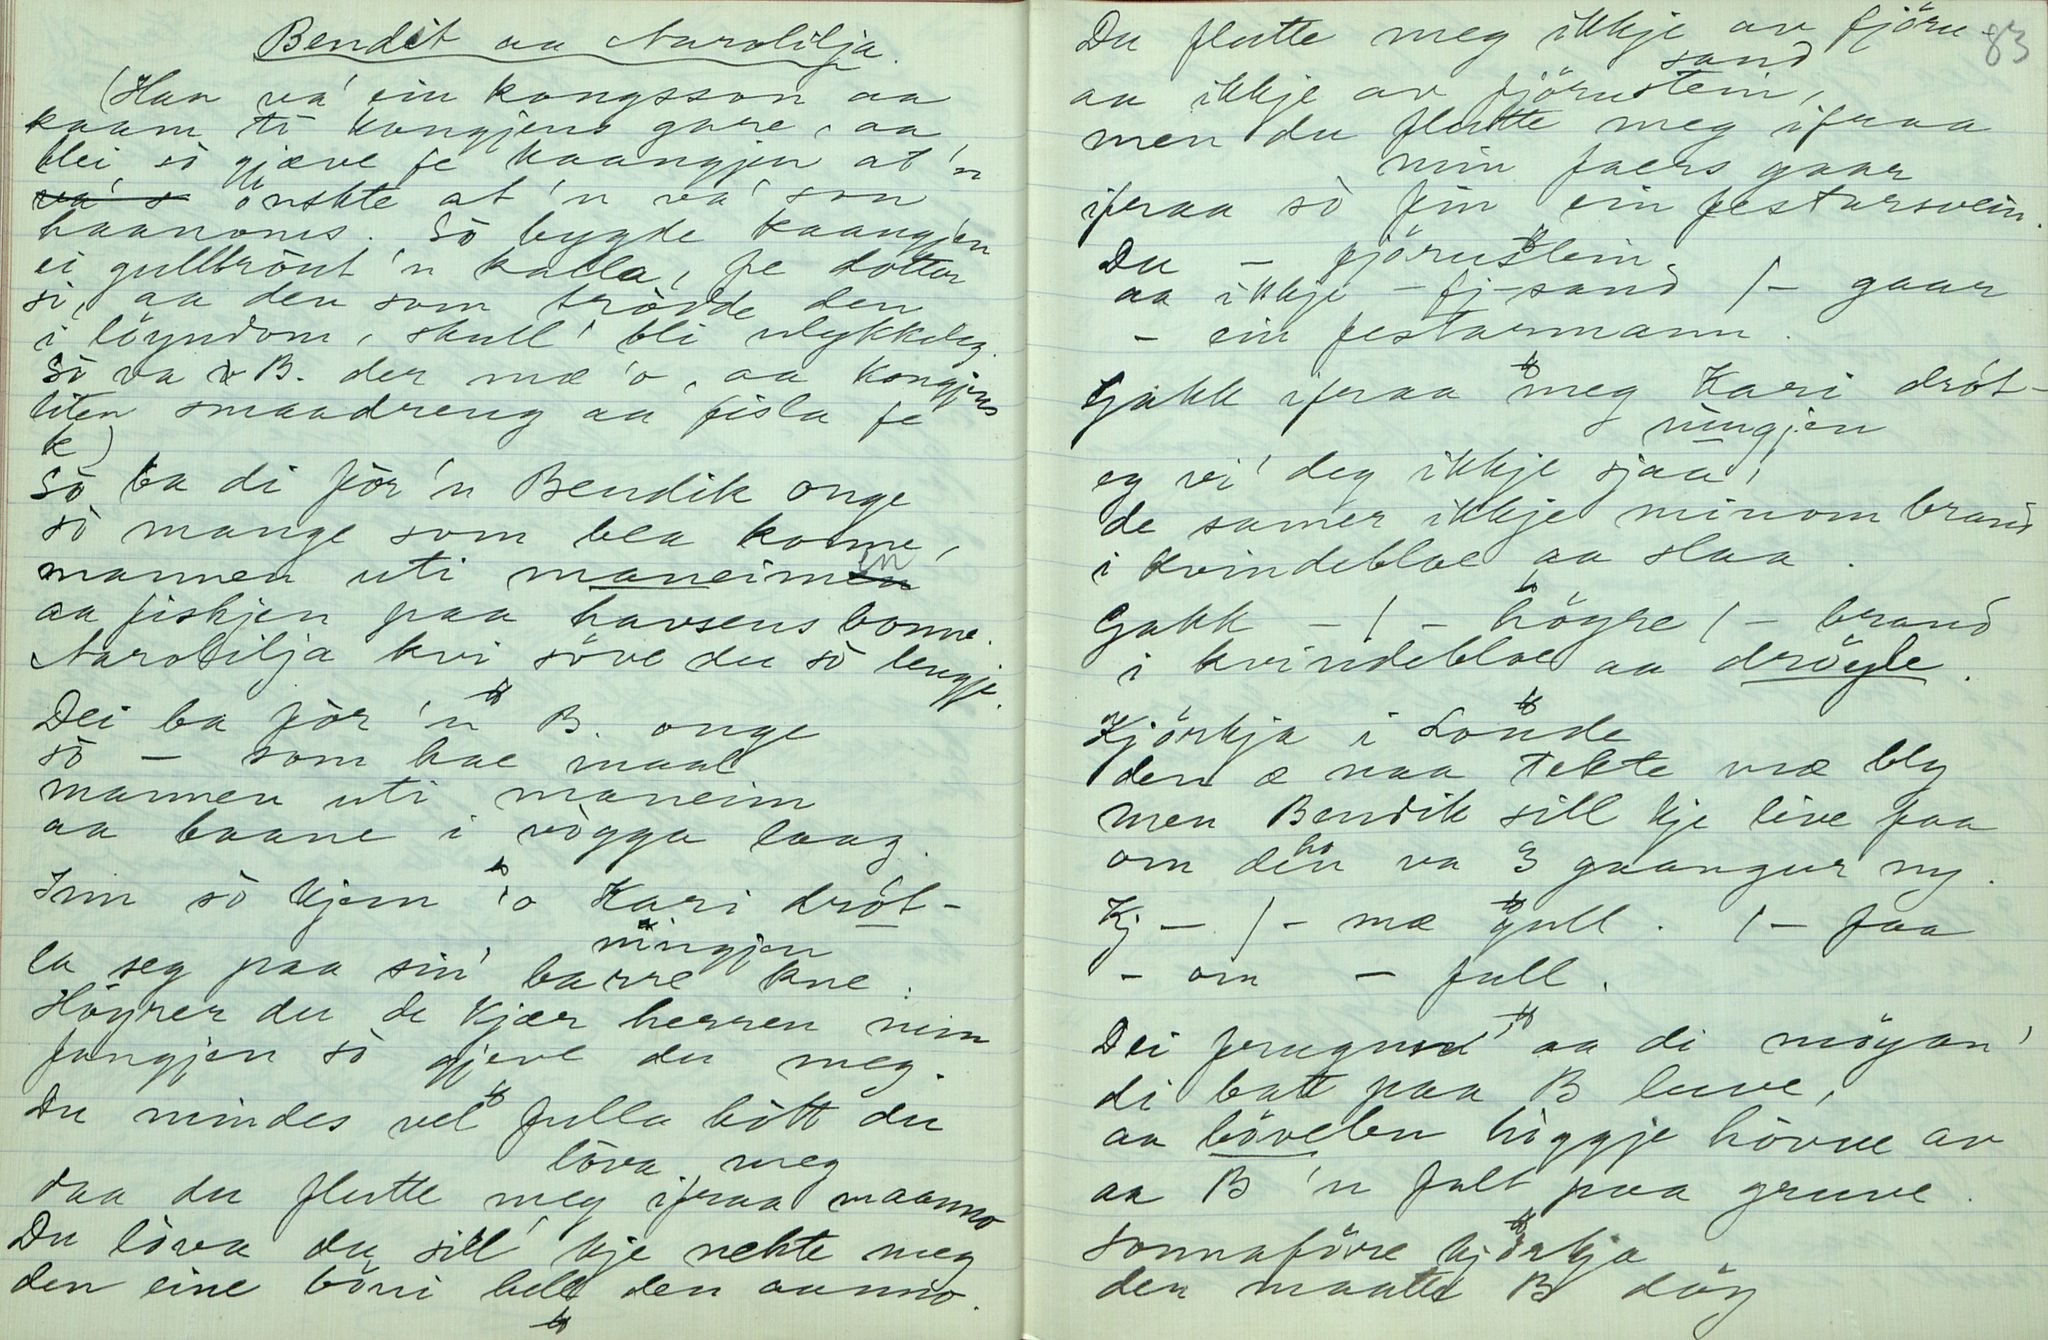 Bendit aa Narolilja.
(Han va' ein kongsson aa
kaam te kongjens gare, aa
blei sò gjæve fe kaangjen at 'n
va' s önskte at 'n va' son
haanoms. Sò bygde kaangjen
ei gullbrönt 'n kalla, fe dotter
si, aa den som trödde den
i löyndom, skull' bli ulykkeleg.
Sò va B. der mæ 'o, aa kongjens
liten smaadreng aa fisla fe
k)
Sò ba di för 'n Bendik onge
sò mange som bea konne,
mannen uti maneimen
aa fiskjen paa havsens bonne.
Narolilja kvi söve du sò lengje.
Dei ba för 'n B. onge
sò – som hae maal
mannen uti maneim
aa baane i vògga laag.
Inn sò kjem 'o Kari dròt-
ningjen
la seg paa sin' barre kne.
Höyrer du de kjær herren min
fangjen sò gjeve du meg.
Du mindes vel fulla hòtt du
lòva meg
daa du flutte meg ifraa maanno
Du lòva du sill' kje nekte meg
den eine böni hell den aanno.
83
Du flutte meg ikkje av fjöru-
sand
aa ikkje av fjörustein,
men du flutte meg ifraa
min faers gaar
ifraa sò fin ein festarsvein.
Du – fjörustein
aa ikkje – fj-sand /- gaar
- ein festarmann.
Gakk ifraa meg Kari dròt-
ningjen
eg vi' deg ikkje sjaa,
de samer ikkje minom brand
i kvindebloe aa slaa.
Gakk – / – högre / – brand
i kvindebloe aa dröyle.
Kjörkja i Sonde
den æ naa tekte mæ bly
men Bendik sill kje live faa
om den ho va 3 gaangur ny.
Kj – / – mæ gull. / – faa
- om – full.
Dei frugund' aa di möyan'
di batt paa B luve,
aa bövelen hòggje hòvue av
aa B 'n falt paa gruve.
Sonnaföre kjörkja
den maatte B döy